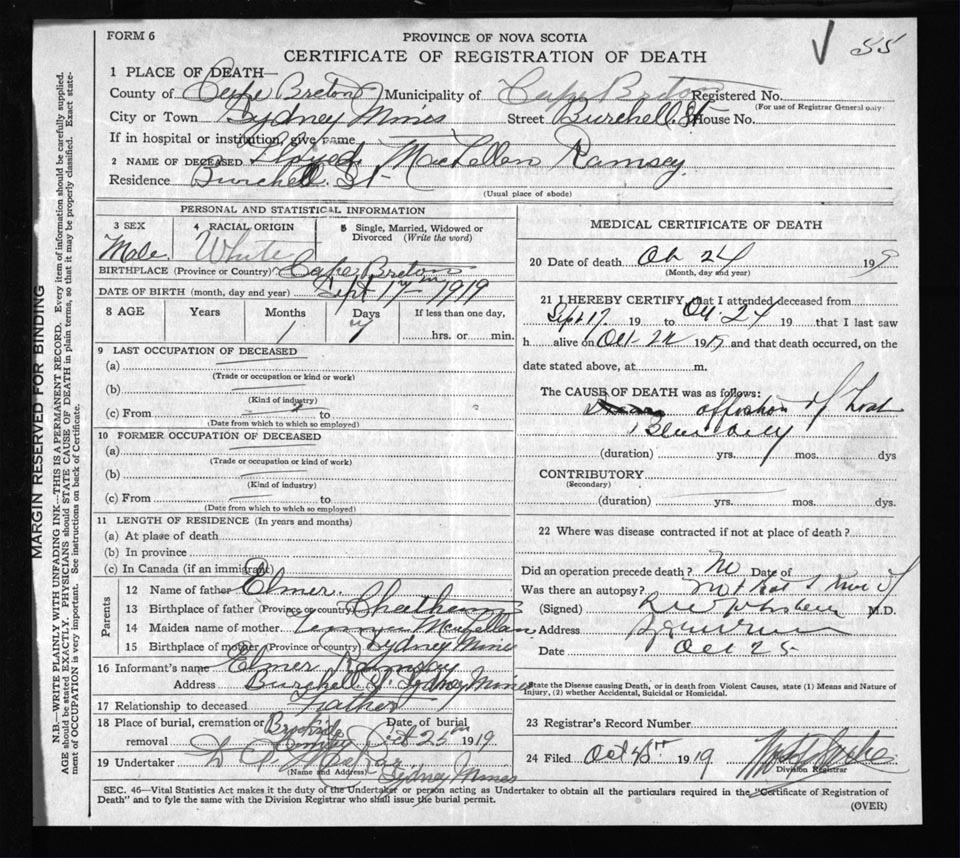 FORM 6
PROVINCE OF NOVA SCOTIA
55
CERTIFICATE OF REGISTRATION OF DEATH
1 PLACE OF DEATH—
County of Cape Breton Municipality of Cape Breton Registered No.
(For use of Registrar General only)
City or Town Sydney Mines Street Burchell St House No.
If in hospital or institution, give name
2 NAME OF DECEASED Lloyed MacLellan Ramsey
Residence Burchell St
(Usual place of abode)
PERSONAL AND STATISTICAL INFORMATION
3 SEX Male
4 RACIAL ORIGIN White
5 Single, Married, Widowed or Divorced (Write the word)
BIRTHPLACE (Province or Country) Cape Breton
DATE OF BIRTH (month, day and year) Sept 17th 1919
8 AGE Years Months Days If less than one day,
1 7 hrs. or min.
9 LAST OCCUPATION OF DECEASED
(a)
(Trade or occupation or kind or work)
(b)
(Kind of industry)
(c) From to
(Date from which to which so employed)
10 FORMER OCCUPATION OF DECEASED
(a)
(Trade or occupation or kind of work)
(b)
(Kind of industry)
(c) From to
(Date from which to which so employed)
11 LENGTH OF RESIDENCE (In years and months)
(a) At place of death
(b) In province
(c) In Canada (if an immigrant)
Parents
12 Name of father Elmer
13 Birthplace of father (Province or country) Chatham
14 Maiden name of mother McLellan
15 Birthplace of mother (Province or country) Sydney Mines
16 Informant's name Elmer Ramsey
Address Burchell St Sydney Mines
17 Relationship to deceased Father
18 Place of burial, cremation or Brookside Date of burial
removal Cemetery Oct 25th 1919
19 Undertaker
(Name and Address) Sydney Mines
MEDICAL CERTIFICATE OF DEATH
20 Date of death Oct 24 19 9
(Month, day and year)
21 I HEREBY CERTIFY, that I attended deceased from
Sept 17 19 to Oct 24 19 that I last saw
h alive on Oct 24 19 and that death occurred, on the
date stated above, at m.
The CAUSE OF DEATH was as follows:
affection of
(duration) yrs. mos. dys
CONTRIBUTORY
(Secondary)
(duration) yrs. mos. dys.
22 Where was disease contracted if not at place of death?
Did an operation precede death? No Date of
Was there an autopsy? not that I know of
(Signed) M.D.
Address
Date Oct 25
State the Disease causing Death, or in death from Violent Causes, state (1) Means and Nature of
Injury, (2) whether Accidental, Suicidal or Homicidal.
23 Registrar's Record Number
24 Filed Oct 1919
Division Registrar
SEC. 46—Vital Statistics Act makes it the duty of the Undertaker or person acting as Undertaker to obtain all the particulars required in the "Certificate of Registration of
Death" and to fyle the same with the Division Registrar who shall issue the burial permit.
(OVER)
MARGIN RESERVED FOR BINDING
N.B.—WRITE PLAINLY WITH UNFADING INK—THIS IS A PERMANENT RECORD. Every item of information should be carefully supplied.
AGE should be stated EXACTLY. PHYSICIANS should STATE CAUSE OF DEATH in plain terms, so that it may be properly classified. Exact state-
ment of OCCUPATION is very important. See instructions on back of Certificate.